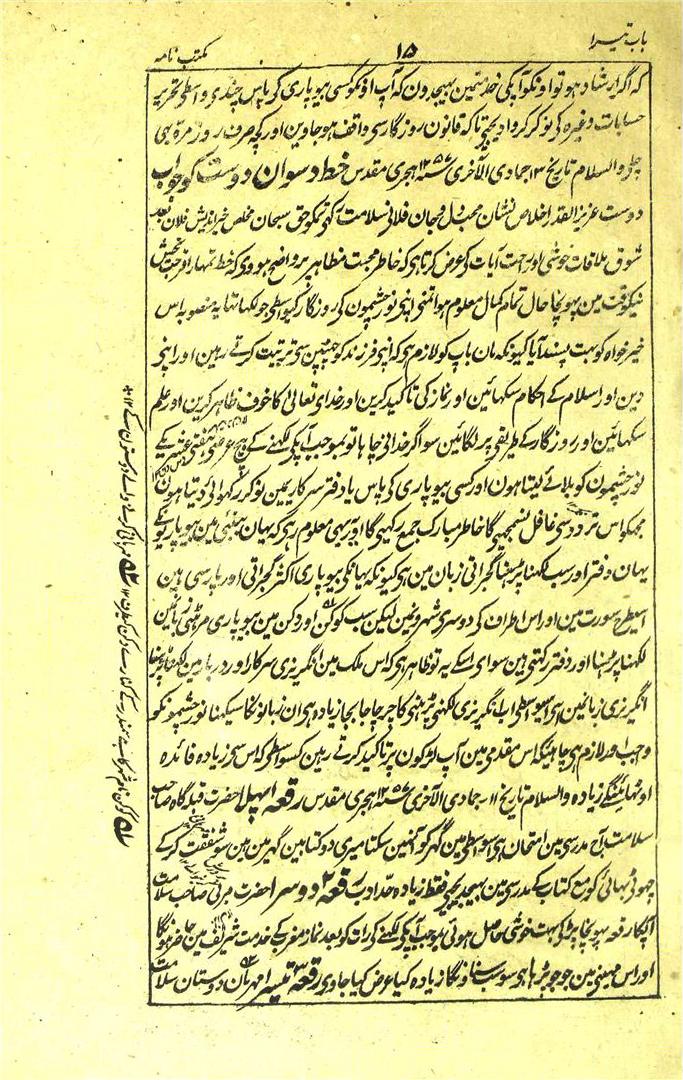 باب تیسرا
۱۵
مکتب نامہ
کہ اگر ارشاد ہو تو اونکو آپکی خدمتمین بہیجدون کہ آپ اونکو کسی بیوپاری کی پاس چندی واسطی تحریر
حسابات وغیرہ کی نوکر کروا دیجئے تاکہ قانون روزگار سی واقف ہو جاوین اور کچہ صرف روزمرہ بہی
والسلام تاریخ ۱۳ جمادی الآخری سنہ ۱۲۵۷ ہجری مقدس خط دسوان دوست کو جواب
دوست عزیز القدر اخلاص نشان محب دل و جان فلانی سلامت حق سبحان مخلص خیر اندیش فلان بعد
شوق ملاقات خوشی اور رحمت آیات کی عرض کرتا ہی کہ خاطر محبت مظاہر پر واضح ہووی کہ خط تمہارا فرحت بخش
نیک وقت مین پہونچا حال تمام کمال معلوم ہوا تمنی اپنی نور چشمون کی روزگار کیواسطی جو لکہا تہا یہ منصوبہ اس
خیر خواہ کو بہت پسند آیا کیونکہ مان باپ کو لازم ہی کہ اپنی فرزند کو بچپن سی تربیت کرتے رہین اور اپنی
دین اور اسلام کے احکام سکہائین اور نماز کی تاکید کرین اور خدای تعالی کا خوف ظاہر کرین اور علم
سکہائین اور روزگار کے طریقی پر لگائین سو اگر خدا نی چاہا تو بموجب آپکی لکہنے کے بیچ عرصی ہفتی عشری کے
نور چشمون کو بلائے لیتا ہون اور کسی بیوپاری کی پاس یا دفتر سرکار یمین نوکر رکہوائی دیتا ہون
مجکو اس تردد سی غافل نسمجہیگا خاطر مبارک جمع رکہیگا اور یہ بہی معلوم رہی کہ یہان بمبئی مین بیوپاریونکے
یہان دفتر اور سب لکہنا پڑہنا گجراتی زبان مین ہی کیونکہ یہانکی بیوپاری اکثر گجراتی اور پارسی ہین
اسیطرح سورت مین اور اس اطراف کی دوسری شہرونمین لیکن سب کوکن اور دکن مین بیوپاری مرہٹی زبانمین
لکہنا پڑہنا اور دفتر رکہتی ہین سوای اسکے یہ تو ظاہر ہی کہ اس ملک مین انگریزی سرکار اور دربار مین لکہنا پڑہنا
انگریزی زبانمین ہی اسیواسطی اب انگریزی لکہنی پڑہنی کا چرچا جابجا زیادہ ہی ان زبانونکا سیکہنا نور چشمونکو
واجب اور لازم ہی چاہیئے کہ اس مقدمی مین آپ لڑکون پر تاکید کرتے رہین کسواسطی کہ اس سی زیادہ فائدہ
اوٹہائینگے زیادہ والسلام تاریخ ۱۱ جمادی الآخری سنہ ۱۲۵۷ ہجری مقدس رقعہ پہلا حضرت قبلہ گاہ صاحب
سلامت آج مدرسی مین امتحان ہی اسواسطی مین گہر کو نہین آ سکتا میری دو کتابین گہر مین ہین سو شفقت کر کے
چہوٹی بہائی کو مع کتاب کے مدرسی مین بہیجدیجئے فقط زیادہ حد ادب رقعہ ۲ دوسرا حضرت مربی صاحب سلامت
آپکا رقعہ پہونچا پڑہکی بہت خوشی حاصل ہوئی بموجب آپکی لکہنی کی رات کو بعد نماز مغرب کے خدمت شریف مین حاضر ہونگا
اور اس مہینی مین جو جو پڑہا ہی سو سب سناونگا زیادہ کیا عرض کیا جاوی رقعہ ۳ تیسرا مہربان دوستان سلامت